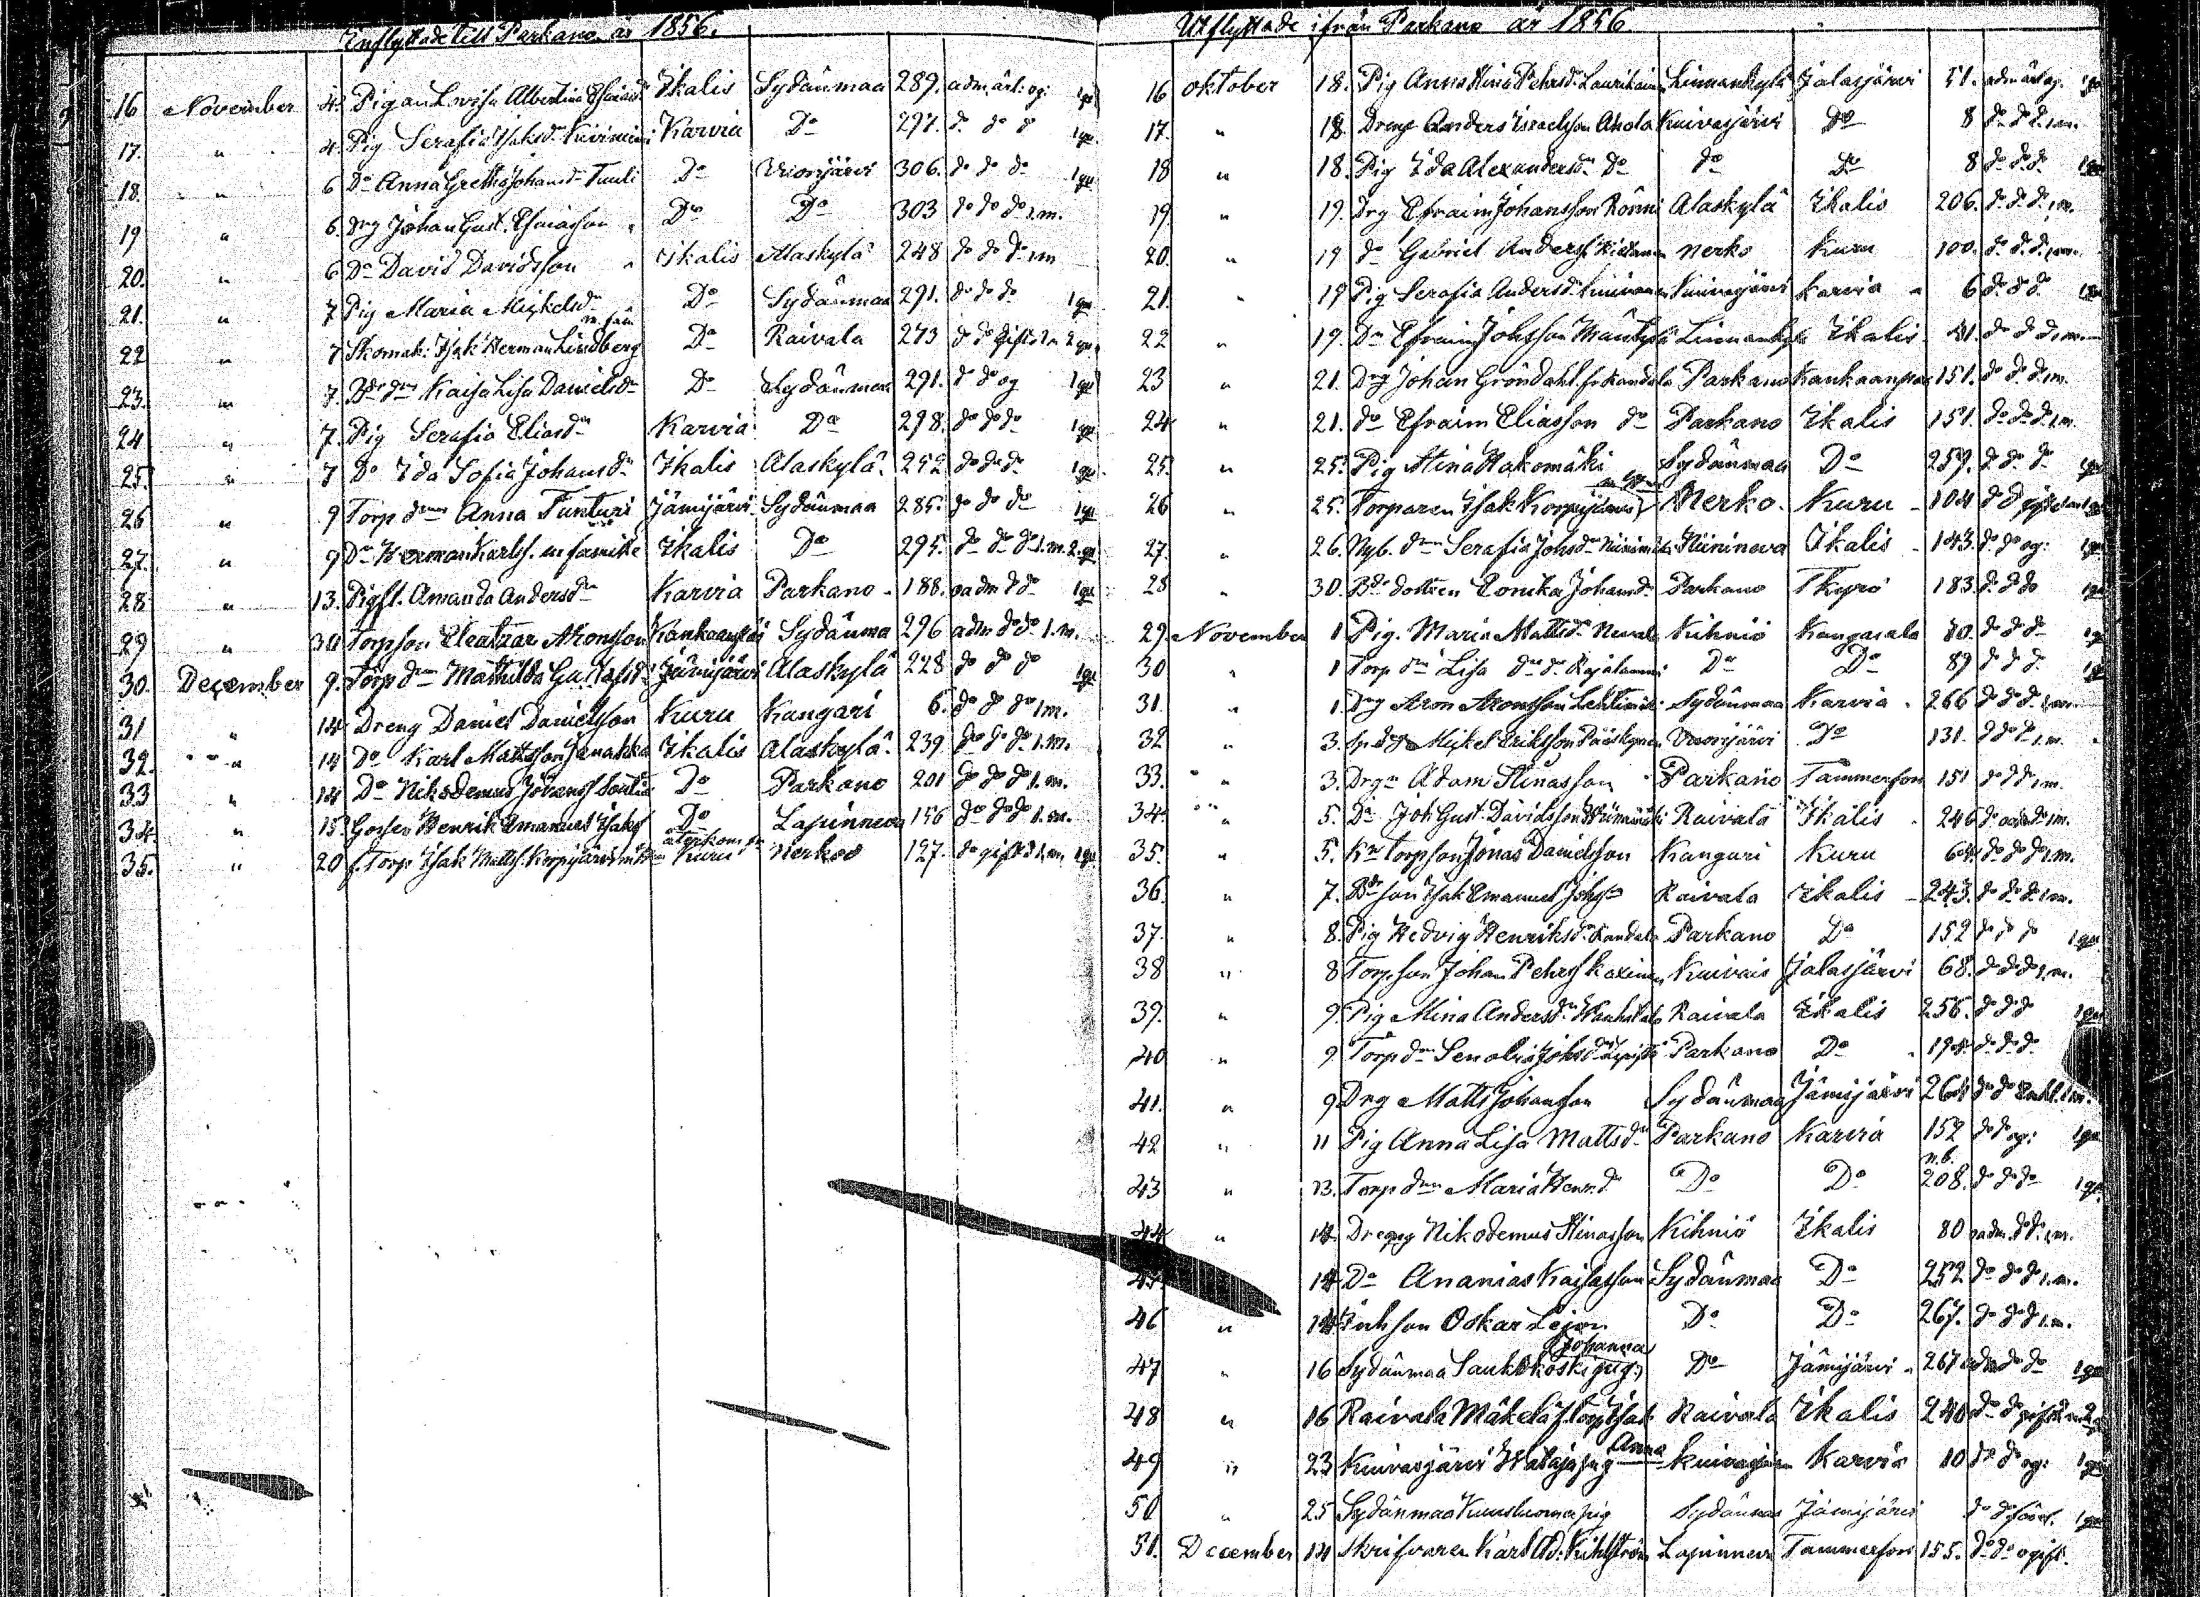 Inflyttade till Parkano år 1856.
16 November 4. Pigan Lovisa Albertina Esaiasdr Ikalis Sydänmaa 289. adm. ärl. og: 1 qu
17. " 4. Pig Serafia Isaksdr Kiviniemi Karvia Do 297. do do do 1 qu.
18. " 6 Do Anna Gretha Johansdr Tuuli Do Vuorijärvi 306. do do do 1 qu
19 " 6. Drg Johan Gust. Esaiasson " Do Do 303 do do do 1.m.
20. " 6 Do David Davidsson " Ikalis Alaskylä 248 do do do 1m
21. " 7 Pig Maria Mickelsdr Do Sydänmaa 291. do do do 1 qu
22 " 7 Skomak: Isak Herman Lindberg m. fam Do Raivala 273 do do gift 1m 2 qu.
23. " 7. Bde dren Kaisa Lisa Danielsdr Do Sydänmaa 291. do do og 1 qu
24 " 7. Pig Serafia Eliasdr Karvia Do 298. do do do 1 qu
25. " 7 Do Ida Sofia Johansdr Ikalis Alaskylä 252 do do do 1 qu
26 " 9 Torp dren Anna Tunturi Jämijärvi Sydänmaa 285. do do do 1 qu
27. " 9 Do Herman Karlss. m familie Ikalis Do 295. do do do 1.m. 2. qu
28 " 13. Pigfl. Amanda Andersdr Karvia Parkano 188. oadm do do 1 qu
29 " 30 Torpson Eleatzar Aronsson Kankaanpää Sydänmaa 296 adm do do 1.m.
30. December 9. Torp dren Mathilda Gustafsdr Jämijärvi Alaskylä 228 do do do 1 qu
31 " 14 Dreng Daniel Danielsson Kuru Kangari 6. do do do 1m.
32. " 14 Do Karl Mattsson Ikalis Alaskylä 239 do do do 1.m.
33 " 14 Do Nikodemus Johanss Do Parkano 201 do do do 1.m.
34. " 15 Gossen Henrik Emanuel Isakss Do Lapinneva 156 do do do 1.m.
35. " 20 f. Torp Isak Mattss. Korpijärvi återkom fr. Kuru Nerkoo 127. do gift do 1.m 1 qu.
Utflyttade ifrån Parkano år 1856.
16 oktober 18. Pig Anna Stina Pehrsdr Laurikainen Linnankylä Jalasjärvi 51. adm ärl og. 1 qu
17. " 18. Dreng Anders Israelsson Ahola Kuivasjärvi Do 8 do do do 1m.
18 " 18. Pig Ida Alexandersdr Do do Do 8 do do do 1 qu
19. " 19. Drg Efraim Johansson Rönni Alaskylä Ikalis 206. do do do 1m.
20. " 19 do Gabriel Anderss. Nerko Kuru 100. do do do 1m.
21. " 19 Pig Serafia Andersdr Kuivasjärvi Karvia 6 do do do 1 qu
22 " 19. Do Efraim Johsson Mäntylä Linnankylä Ikalis 41. do do do 1m
23 " 21. Drg Johan Gröndahl fr. Kandola Parkano Kankaanpää 151. do do do 1m.
24 " 21. do Efraim Eliasson do Parkano Ikalis 151. do do do 1m.
25. " 25. Pig Stina Hakomäki Sydänmaa Do 259. do do do 1 qu
26 " 25. Torparen Isak Korpijärvi Nerko. Kuru 104 do do gift
27. " 26. Nyb. dren Serafia Johsdr Niininen Niinineva Ikalis 143. do do og: 1 qu
28 " 30. Bde dottren Lovika Johansdr Parkano Tkyrö 183 do do do 1 qu
29. November 1 Pig. Maria Mattsdr Nevala Kihniö Kangasala 80. do do do 1 qu
30 " 1 Torp dren Lisa do do Rajalammi Do Do 89 do do do 1 qu
31. " 1. Drg Aron Aronsson Lehtimäki Sydänmaa Karvia 266 do do do 1m
32 " 3. Mickel Eriksson Pääskynen Vuorijärvi Do 131. do do do 1.m.
33. " 3. Drgn Adam Stinasson Parkano Tammerfors 151 do do do 1m.
34. " 5. Do Joh Gust. Davidsson Raivala Ikalis 246 do oadm do 1m.
35. " 5. Torpson Jonas Danielsson Kangari Kuru 64. do do do 1.m.
36. " 7. Bde son Isak Emanuel Johss Raivala Ikalis 243. do do do 1m.
37. " 8. Pig Hedvig Henriksdr Kandola Parkano Do 152 do do do 1 qu
38 " 8 Torpson Johan Pehrss Kuivais Jalasjärvi 68. do do do 1.m.
39. " 9. Pig Mina Andersdr Raivala Ikalis 256. do do do 1 qu
40 " 9 Torp dren Senabia Johsdr Parkano Do 198 do do do
41. " 9 Drg Matts Johansson Sydänmaa Jämijärvi 264 do do Enkl. 1m.
42 " 11 Pig Anna Lisa Mattsdr Parkano Karvia 152 do do og: 1 qu
43 " 13. Torp dren Maria Henr.dr Do Do n.b. 208. do do do 1 qu.
44 " 14. Dreng Nikodemus Stinasson Kihniö Ikalis 80 oadm. do do 1m.
45 " 14 Do Ananias Kaisasson Sydänmaa Do 252 do do do 1.m.
46 " 14 Inhson Oskar Lejon Do Do 267. do do do 1.m.
47 " 16 Sydänmaa Saukkokoski pig. Johanna Do Jämijärvi 267 adm do do 1 qu
48 " 16 Raivala Mäkelä f. torp Isak Raivala Ikalis 240 do do gift
49 " 23 Kuivasjärvi Hataja pig Anna Kuivasjärvi Karvia 10 do do og: 1 qu
50 " 25 Sydänmaa Kuusluoma pig Sydänmaa Jämijärvi do do 1 qu
51. December 14 Skrifvaren Karl Ad. Kihlström Lapinneva Tammerfors 155. do do ogift.